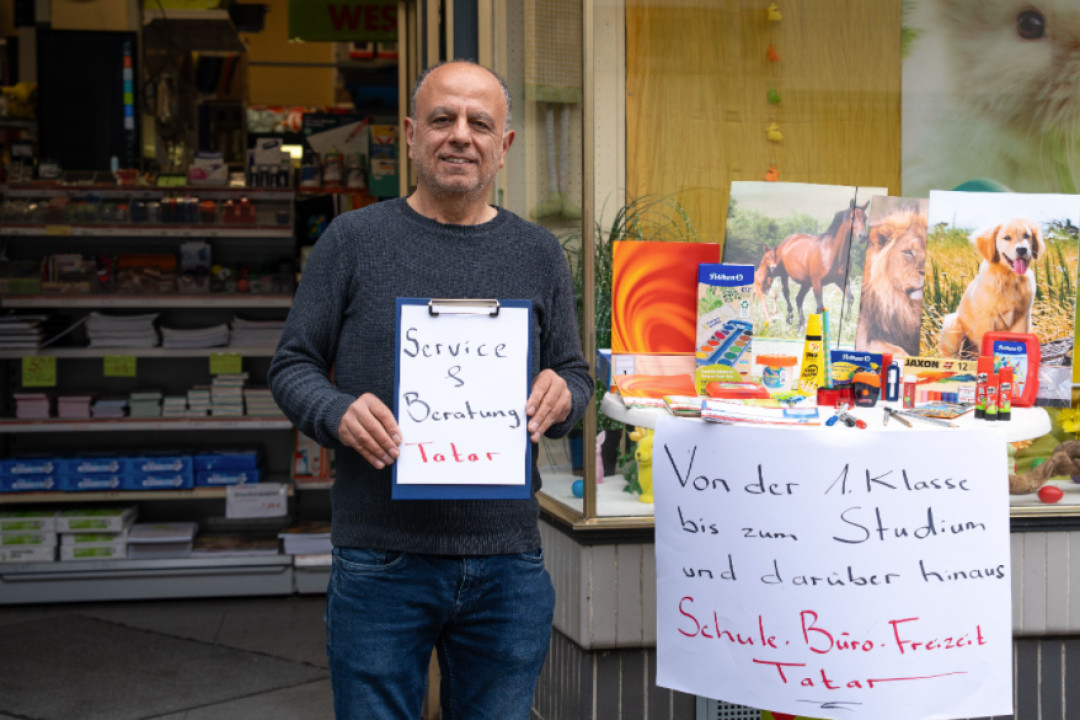 WES
Service
&
Beratung
Tatar
Pelikan
Pelikan
Pelikan
JAXON 12
Von der 1. Klasse
bis zum Studium
und darüber hinaus
Schule. Büro. Freizeit
Tatar